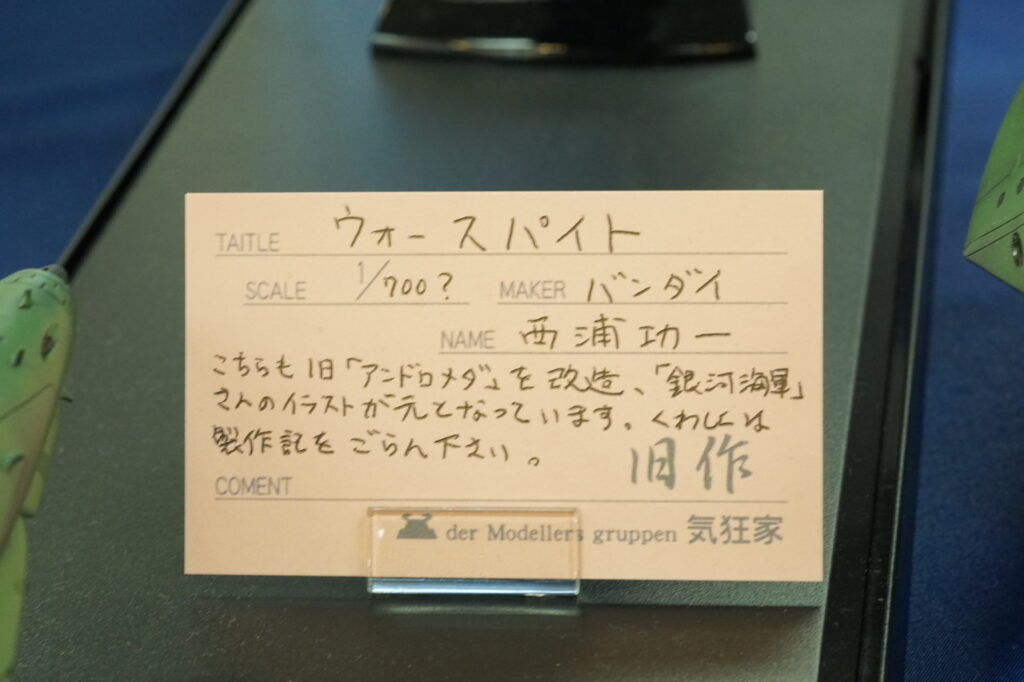 TAITLE ウォースパイト
SCALE 1/700? MAKER バンダイ
NAME 西浦功一
こちらも旧「アンドロメダ」を改造、「銀河海軍」
さんのイラストが元となっています。くわしくは
製作記をごらん下さい。
旧作
COMENT
der Modellers gruppen 気狂家